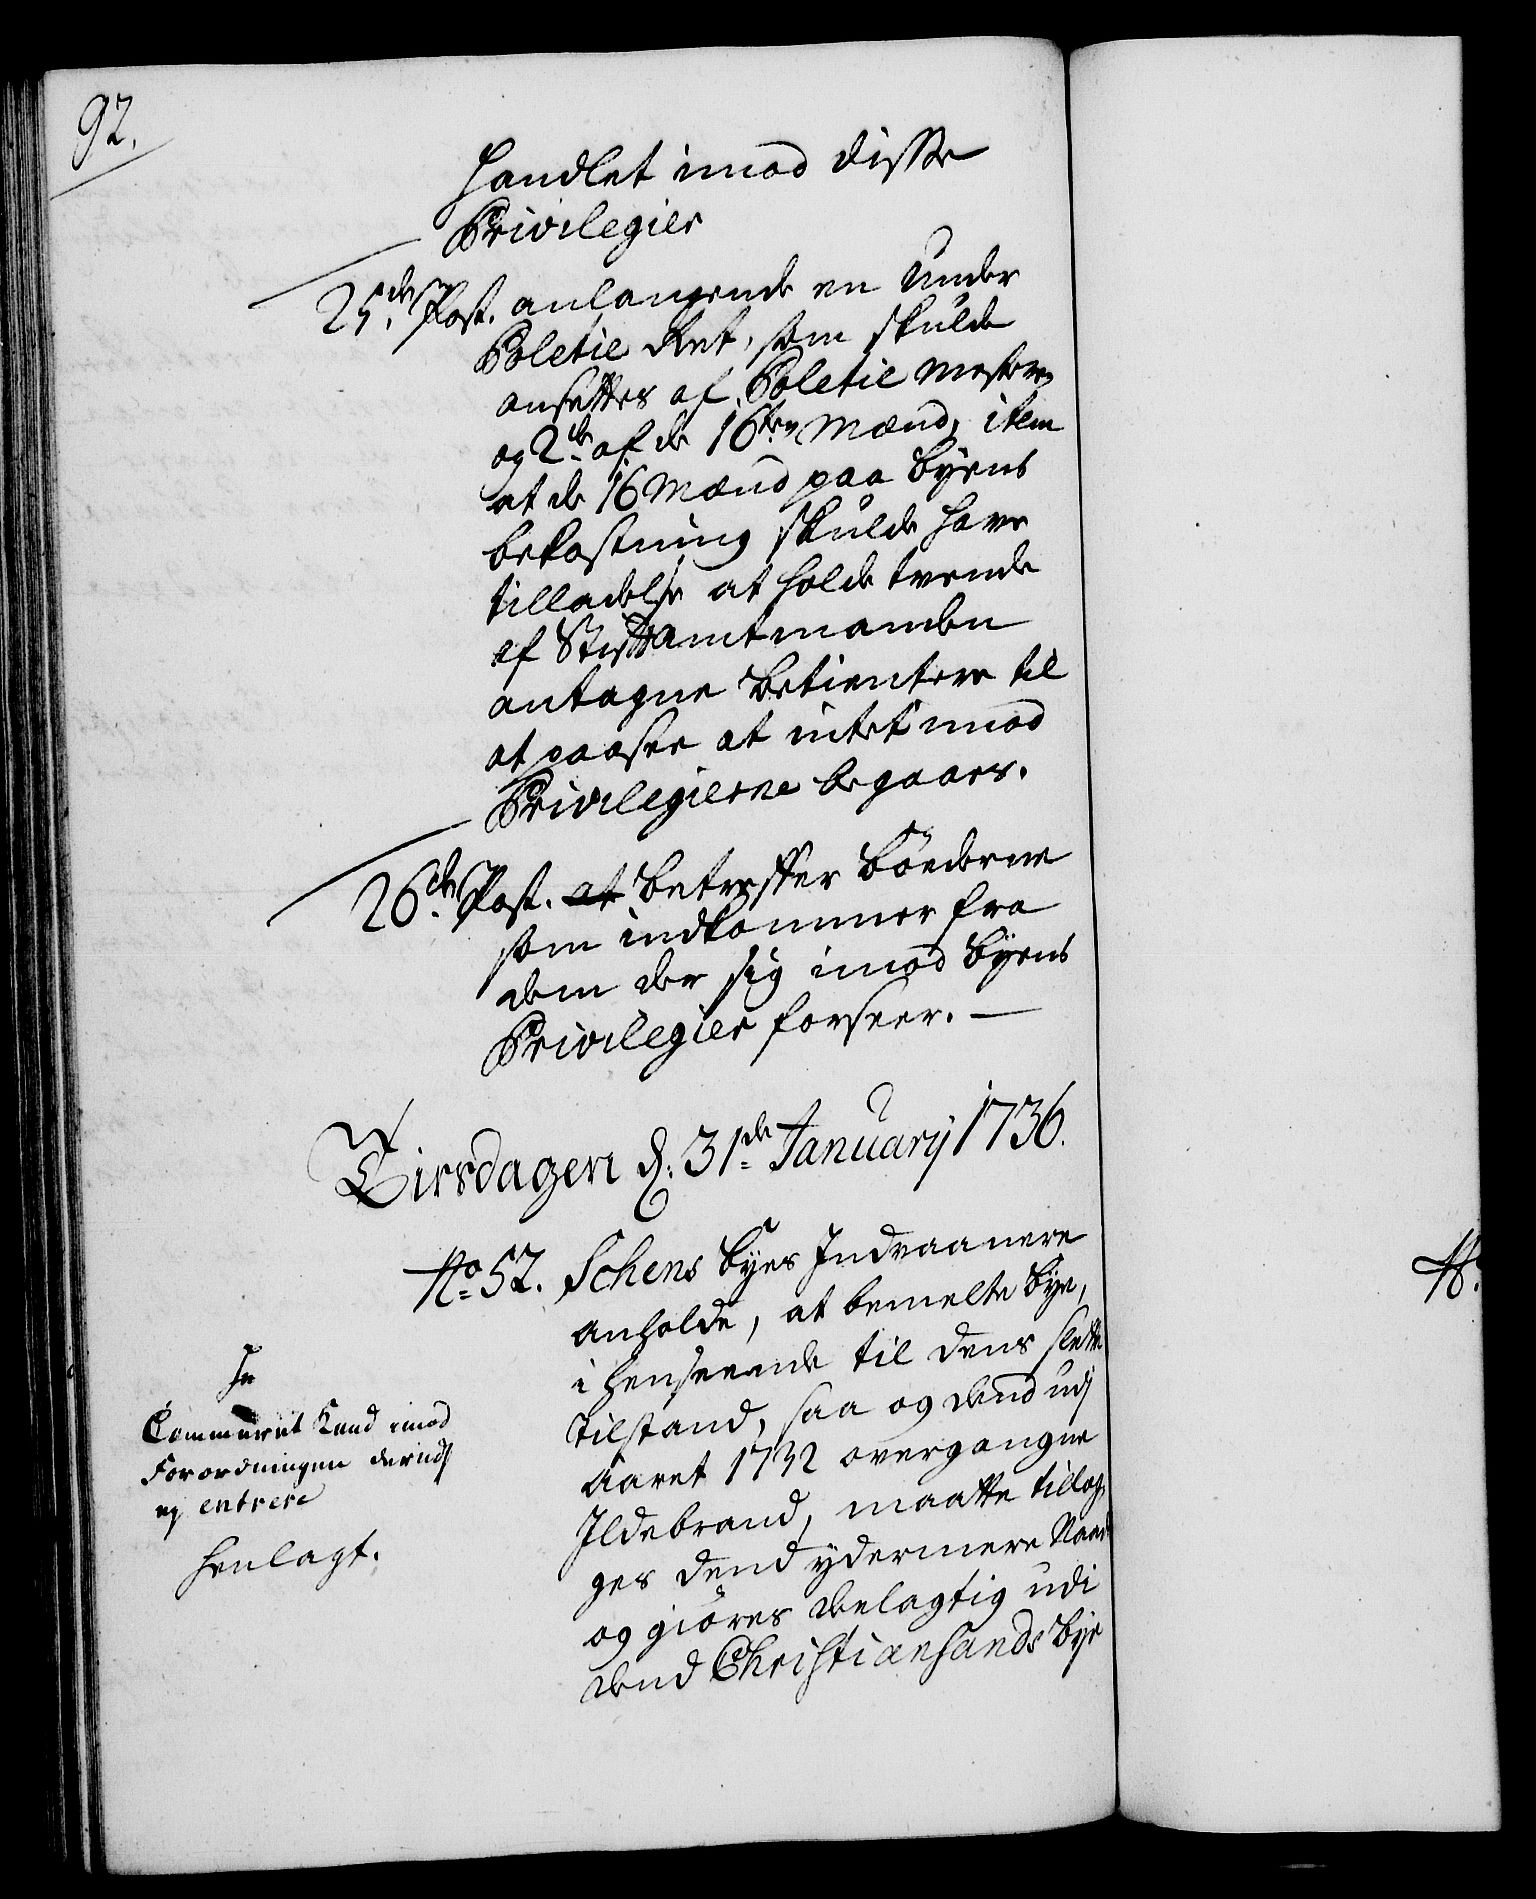 92.
handlet imod disse
Privilegier
25de Post. anlangende en Under
Poletie Ret, som skulde
ansettes af Poletie mesteren
og 2de af de 16ten Mænd, item
at de 16 Mænd paa byens
bekostning skulde have
tilladelse at holde tvende
af Stiftamtmanden
antagne betientere til
at paasee at intet imod
Privilegierne begaaes.
26de Post. at betreffer böderne
som indkommer fra
dem der sig imod byens
Privilegier forseer. —
Tirsdagen d: 31de January 1736.
No 52. Schens byes Indvaanere
anholde, at bemelte bye,
i henseende til dens slette
tilstand, saa og dend udj
aaret 1732 overgangne
Ildebrand, maatte tillæg-
ges dend ydermere Naade
og giöres delagtig udi
dend Christiansands bye
Commercet Kand imod
Forordningen derudj
ej entrere
henlagt.